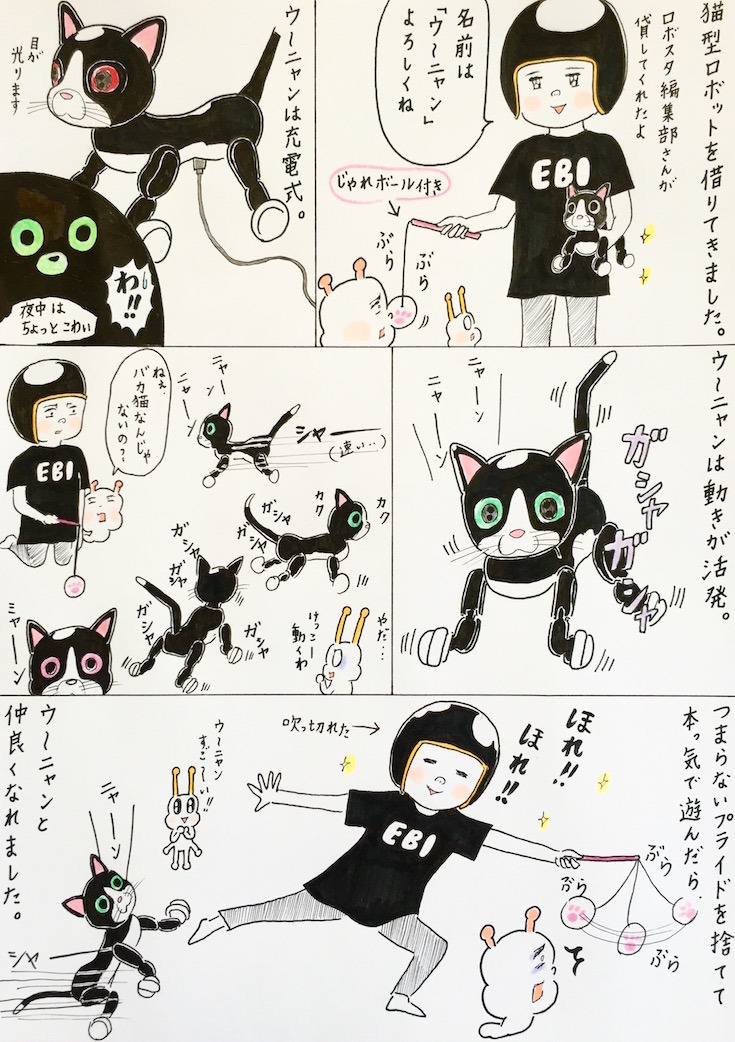 猫型ロボットを借りてきました。
ロボスタ編集部さんが
貸してくれたよ
名前は
「ウ〜ニャン」
よろしくね
EBI
じゃれボール付き
ぶら
ぶら
ウ〜ニャンは充電式。
目が
光ります
わ
!!
夜中は
ちょっとこわい
ウ〜ニャンは動きが活発。
ニャーン
ニャーン
ガシャ
ガシャ
ニャーン
ニャーン
シャー
(速い・・)
ねぇ、
バカ猫なんじゃ
ないの?
EBI
カク
カク
ガシャ
ガシャ
ガシャ
ガシャ
ガシャ
ガシャ
やだ・・・
けっこー
動くわ
ミャーン
つまらないプライドを捨てて
本っ気で遊んだら、
ほれ!!
ほれ!!
吹っ切れた
EBI
ぶら
ぶら
ぶら
ウ〜ニャン
すご〜い!!
ニャーン
シャー
ウ〜ニャンと
仲良くなれました。